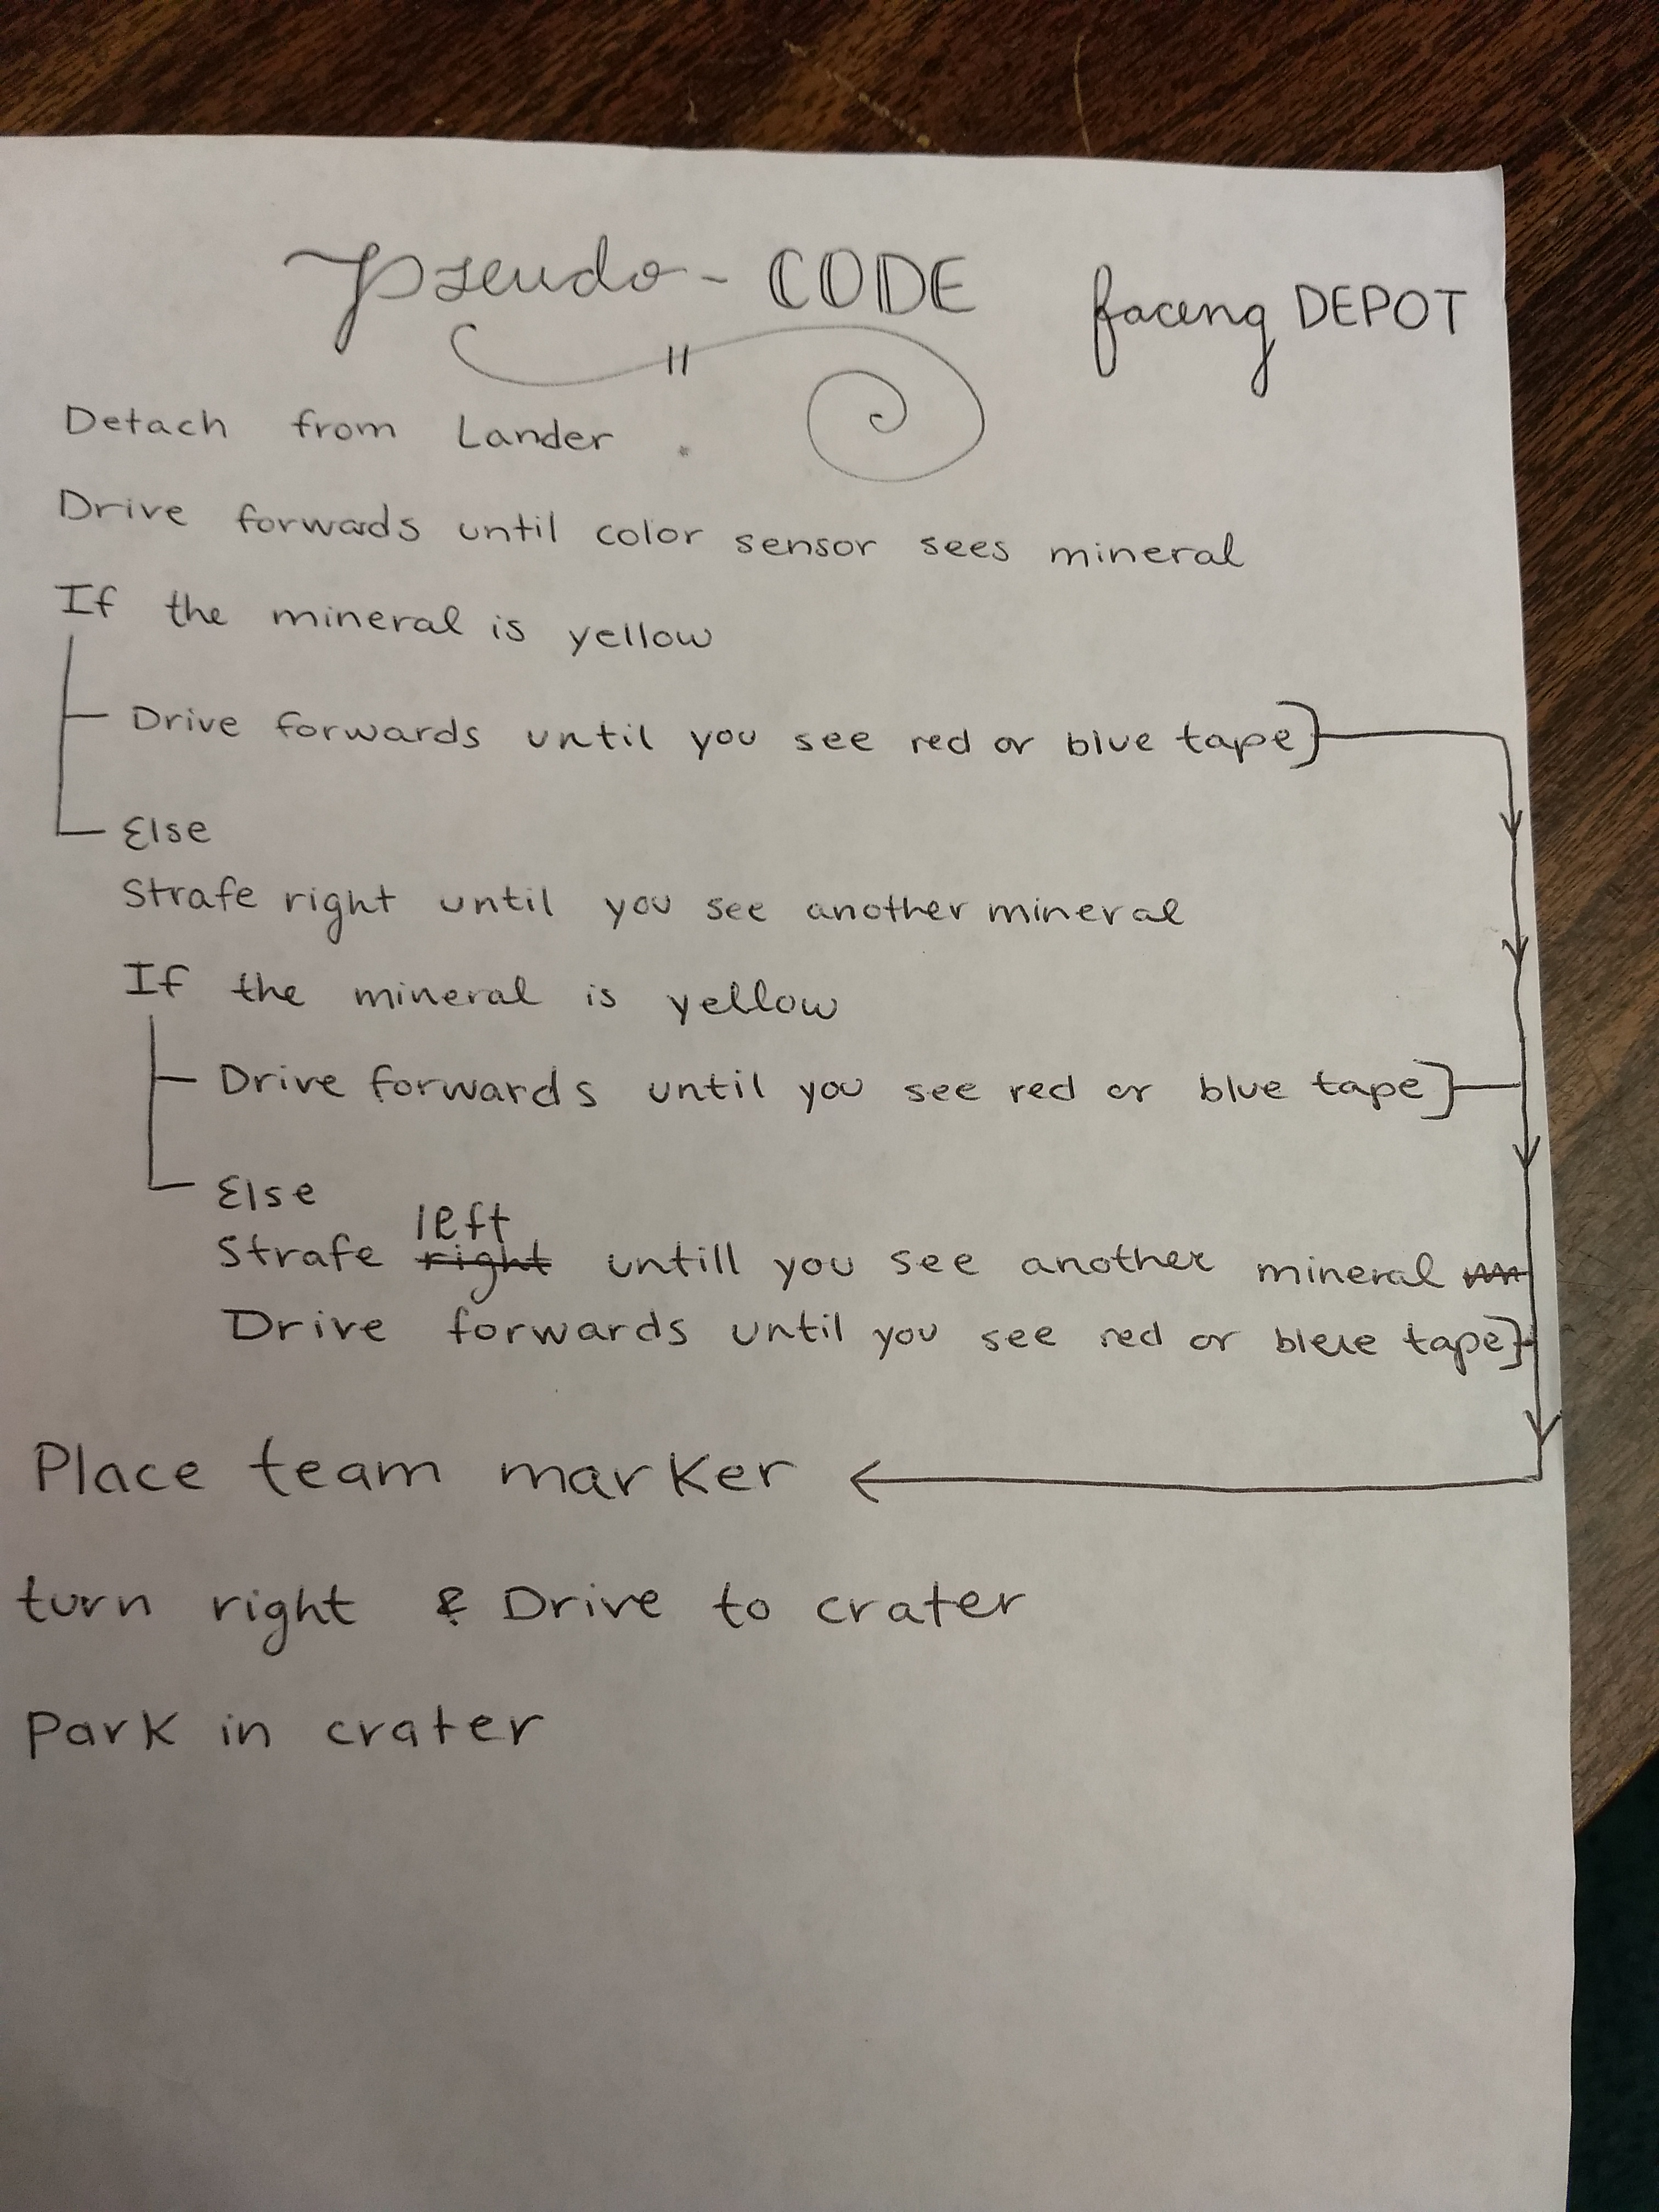 Pseudo-CODE facing DEPOT
Detach from Lander.
Drive forwads until color sensor sees mineral
If the mineral is yellow
Drive forwards until you see red or blue tape}
Else
Strafe right until you see another mineral
If the mineral is yellow
Drive forwards until you see red or blue tape}
Else
left
Strafe right untill you see another mineral
Drive forwards until you see red or blue tape}
Place team marker
turn right & Drive to crater
Park in crater